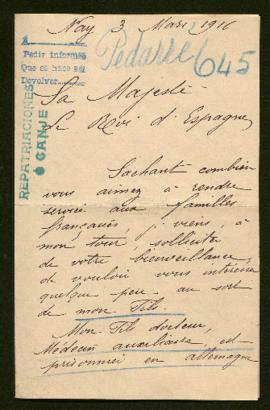 Nay, 3 Mars 1916
A
Pedir informes
Que se haga así
Devolver
Pedarre 645
REPATRIACIONES
ó CANJE
Sa Majesté
Le Roi d'Espagne,
Sachant combien
vous aimez à rendre
service aux familles
françaises, je viens, à
mon tour, solliciter
de votre bienveillance,
de vouloir vous intéresser
quelque peu au sort
de mon Fils.
Mon Fils docteur,
Médecin auxiliaire, est
prisonnier en Allemagne